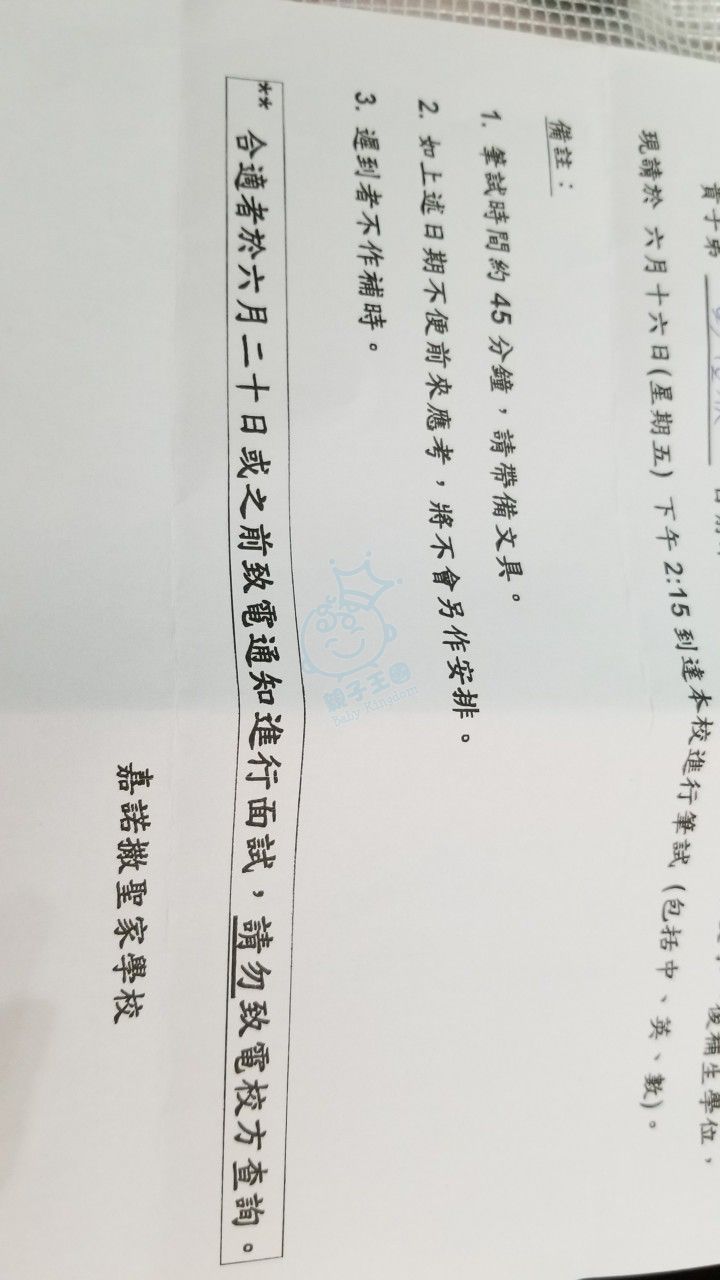 貴子弟
候補生學位，
現請於 六月十六日(星期五) 下午 2:15 到達本校進行筆試 (包括中、英、數)。
備註：
1. 筆試時間約 45 分鐘，請帶備文具。
2. 如上述日期不便前來應考，將不會另作安排。
3. 遲到者不作補時。
** 合適者於六月二十日或之前致電通知進行面試，請勿致電校方查詢。
嘉諾撒聖家學校
親子王國
Baby Kingdom